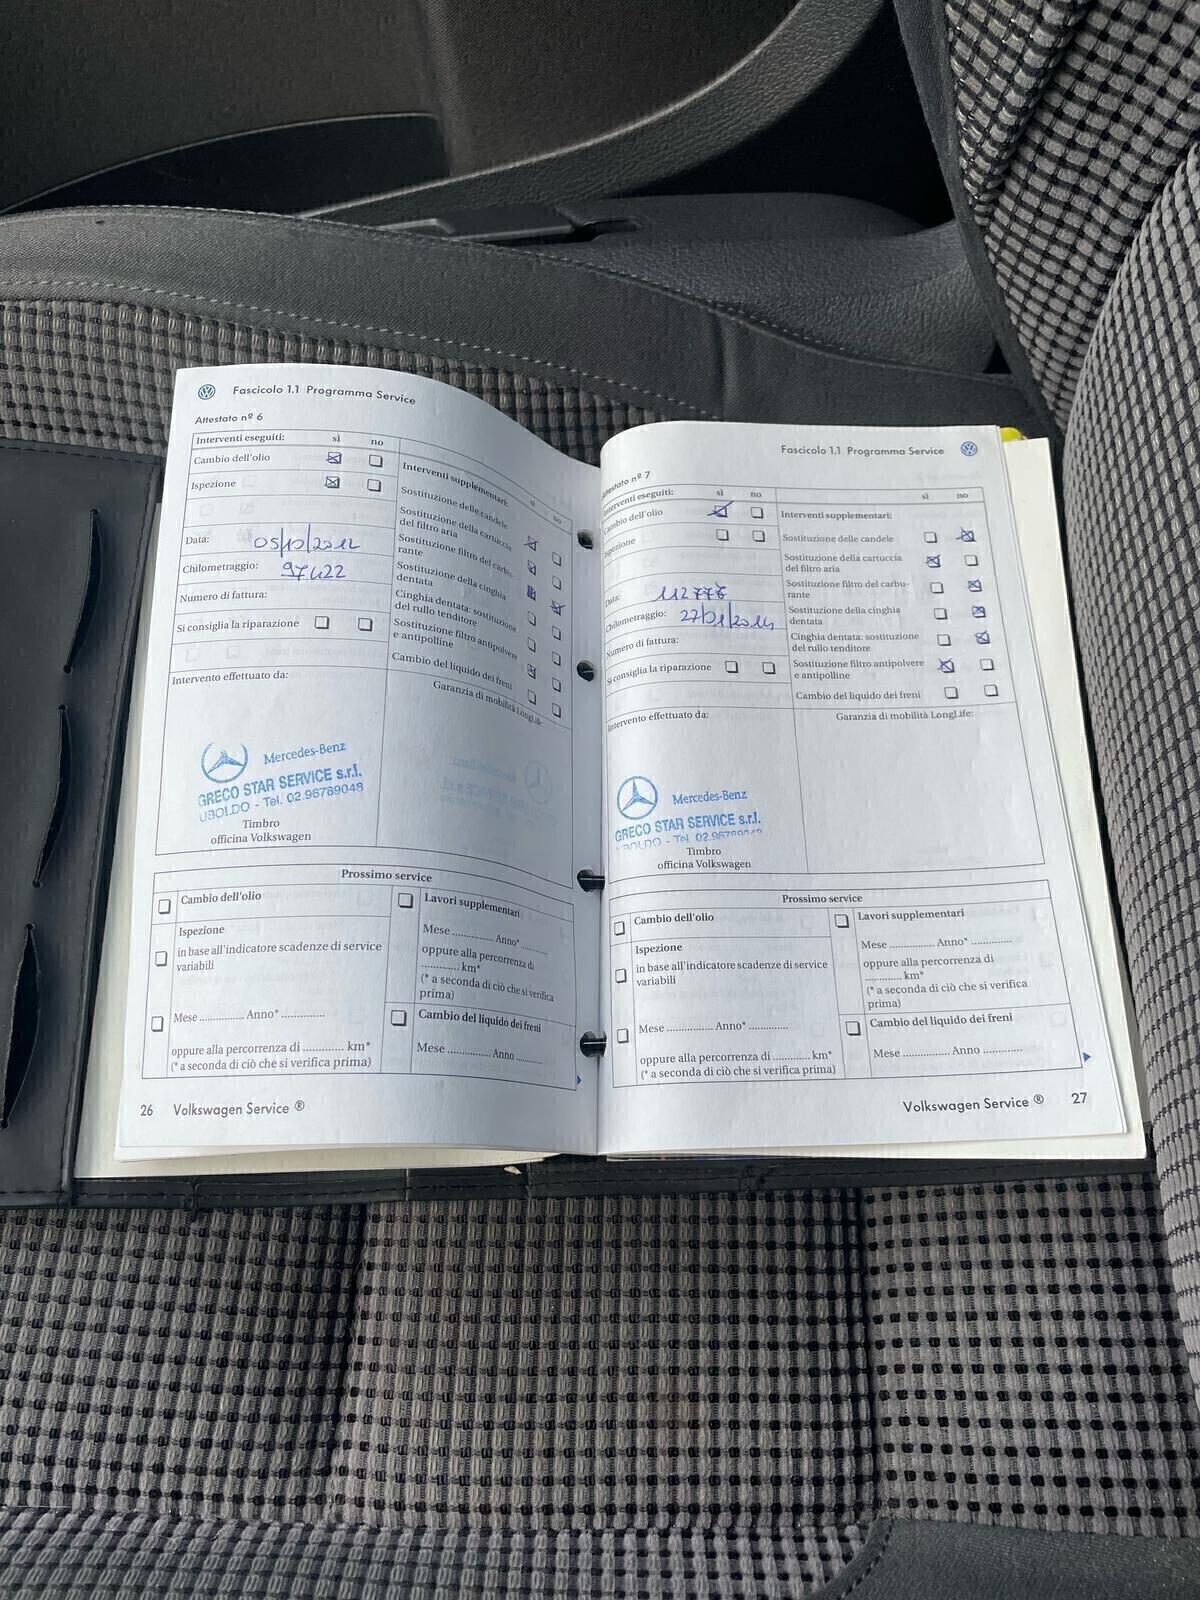 Fascicolo 1.1 Programma Service
Attestato nº 6
Interventi eseguiti: sì no
Cambio dell'olio
Ispezione
Data: 05/10/2012
Chilometraggio: 97422
Numero di fattura:
Si consiglia la riparazione
Interventi supplementari: sì no
Sostituzione delle candele
Sostituzione della cartuccia
del filtro aria
Sostituzione filtro del carbu-
rante
Sostituzione della cinghia
dentata
Cinghia dentata: sostituzione
del rullo tenditore
Sostituzione filtro antipolvere
e antipolline
Cambio del liquido dei freni
Intervento effettuato da:
Garanzia di mobilità LongLife:
Mercedes-Benz
GRECO STAR SERVICE s.r.l.
UBOLDO - Tel. 02.96789048
Timbro
officina Volkswagen
Prossimo service
Cambio dell'olio
Ispezione
in base all'indicatore scadenze di service
variabili
Mese ................ Anno* ................
oppure alla percorrenza di ............ km*
(* a seconda di ciò che si verifica prima)
Lavori supplementari
Mese ................ Anno* ............
oppure alla percorrenza di
............ km*
(* a seconda di ciò che si verifica
prima)
Cambio del liquido dei freni
Mese ................ Anno ..........
26 Volkswagen Service ®
Fascicolo 1.1 Programma Service
Attestato nº 7
Interventi eseguiti: sì no
Cambio dell'olio
Ispezione
Data: 112776
Chilometraggio: 27/01/2014
Numero di fattura:
Si consiglia la riparazione
sì no
Interventi supplementari:
Sostituzione delle candele
Sostituzione della cartuccia
del filtro aria
Sostituzione filtro del carbu-
rante
Sostituzione della cinghia
dentata
Cinghia dentata: sostituzione
del rullo tenditore
Sostituzione filtro antipolvere
e antipolline
Cambio del liquido dei freni
Intervento effettuato da:
Garanzia di mobilità LongLife:
Mercedes-Benz
GRECO STAR SERVICE s.r.l.
UBOLDO - Tel. 02.96789048
Timbro
officina Volkswagen
Prossimo service
Cambio dell'olio
Ispezione
in base all'indicatore scadenze di service
variabili
Mese ................ Anno* ..............
oppure alla percorrenza di ............ km*
(* a seconda di ciò che si verifica prima)
Lavori supplementari
Mese ................ Anno* ..............
oppure alla percorrenza di
............ km*
(* a seconda di ciò che si verifica
prima)
Cambio del liquido dei freni
Mese ................ Anno ..............
Volkswagen Service ® 27